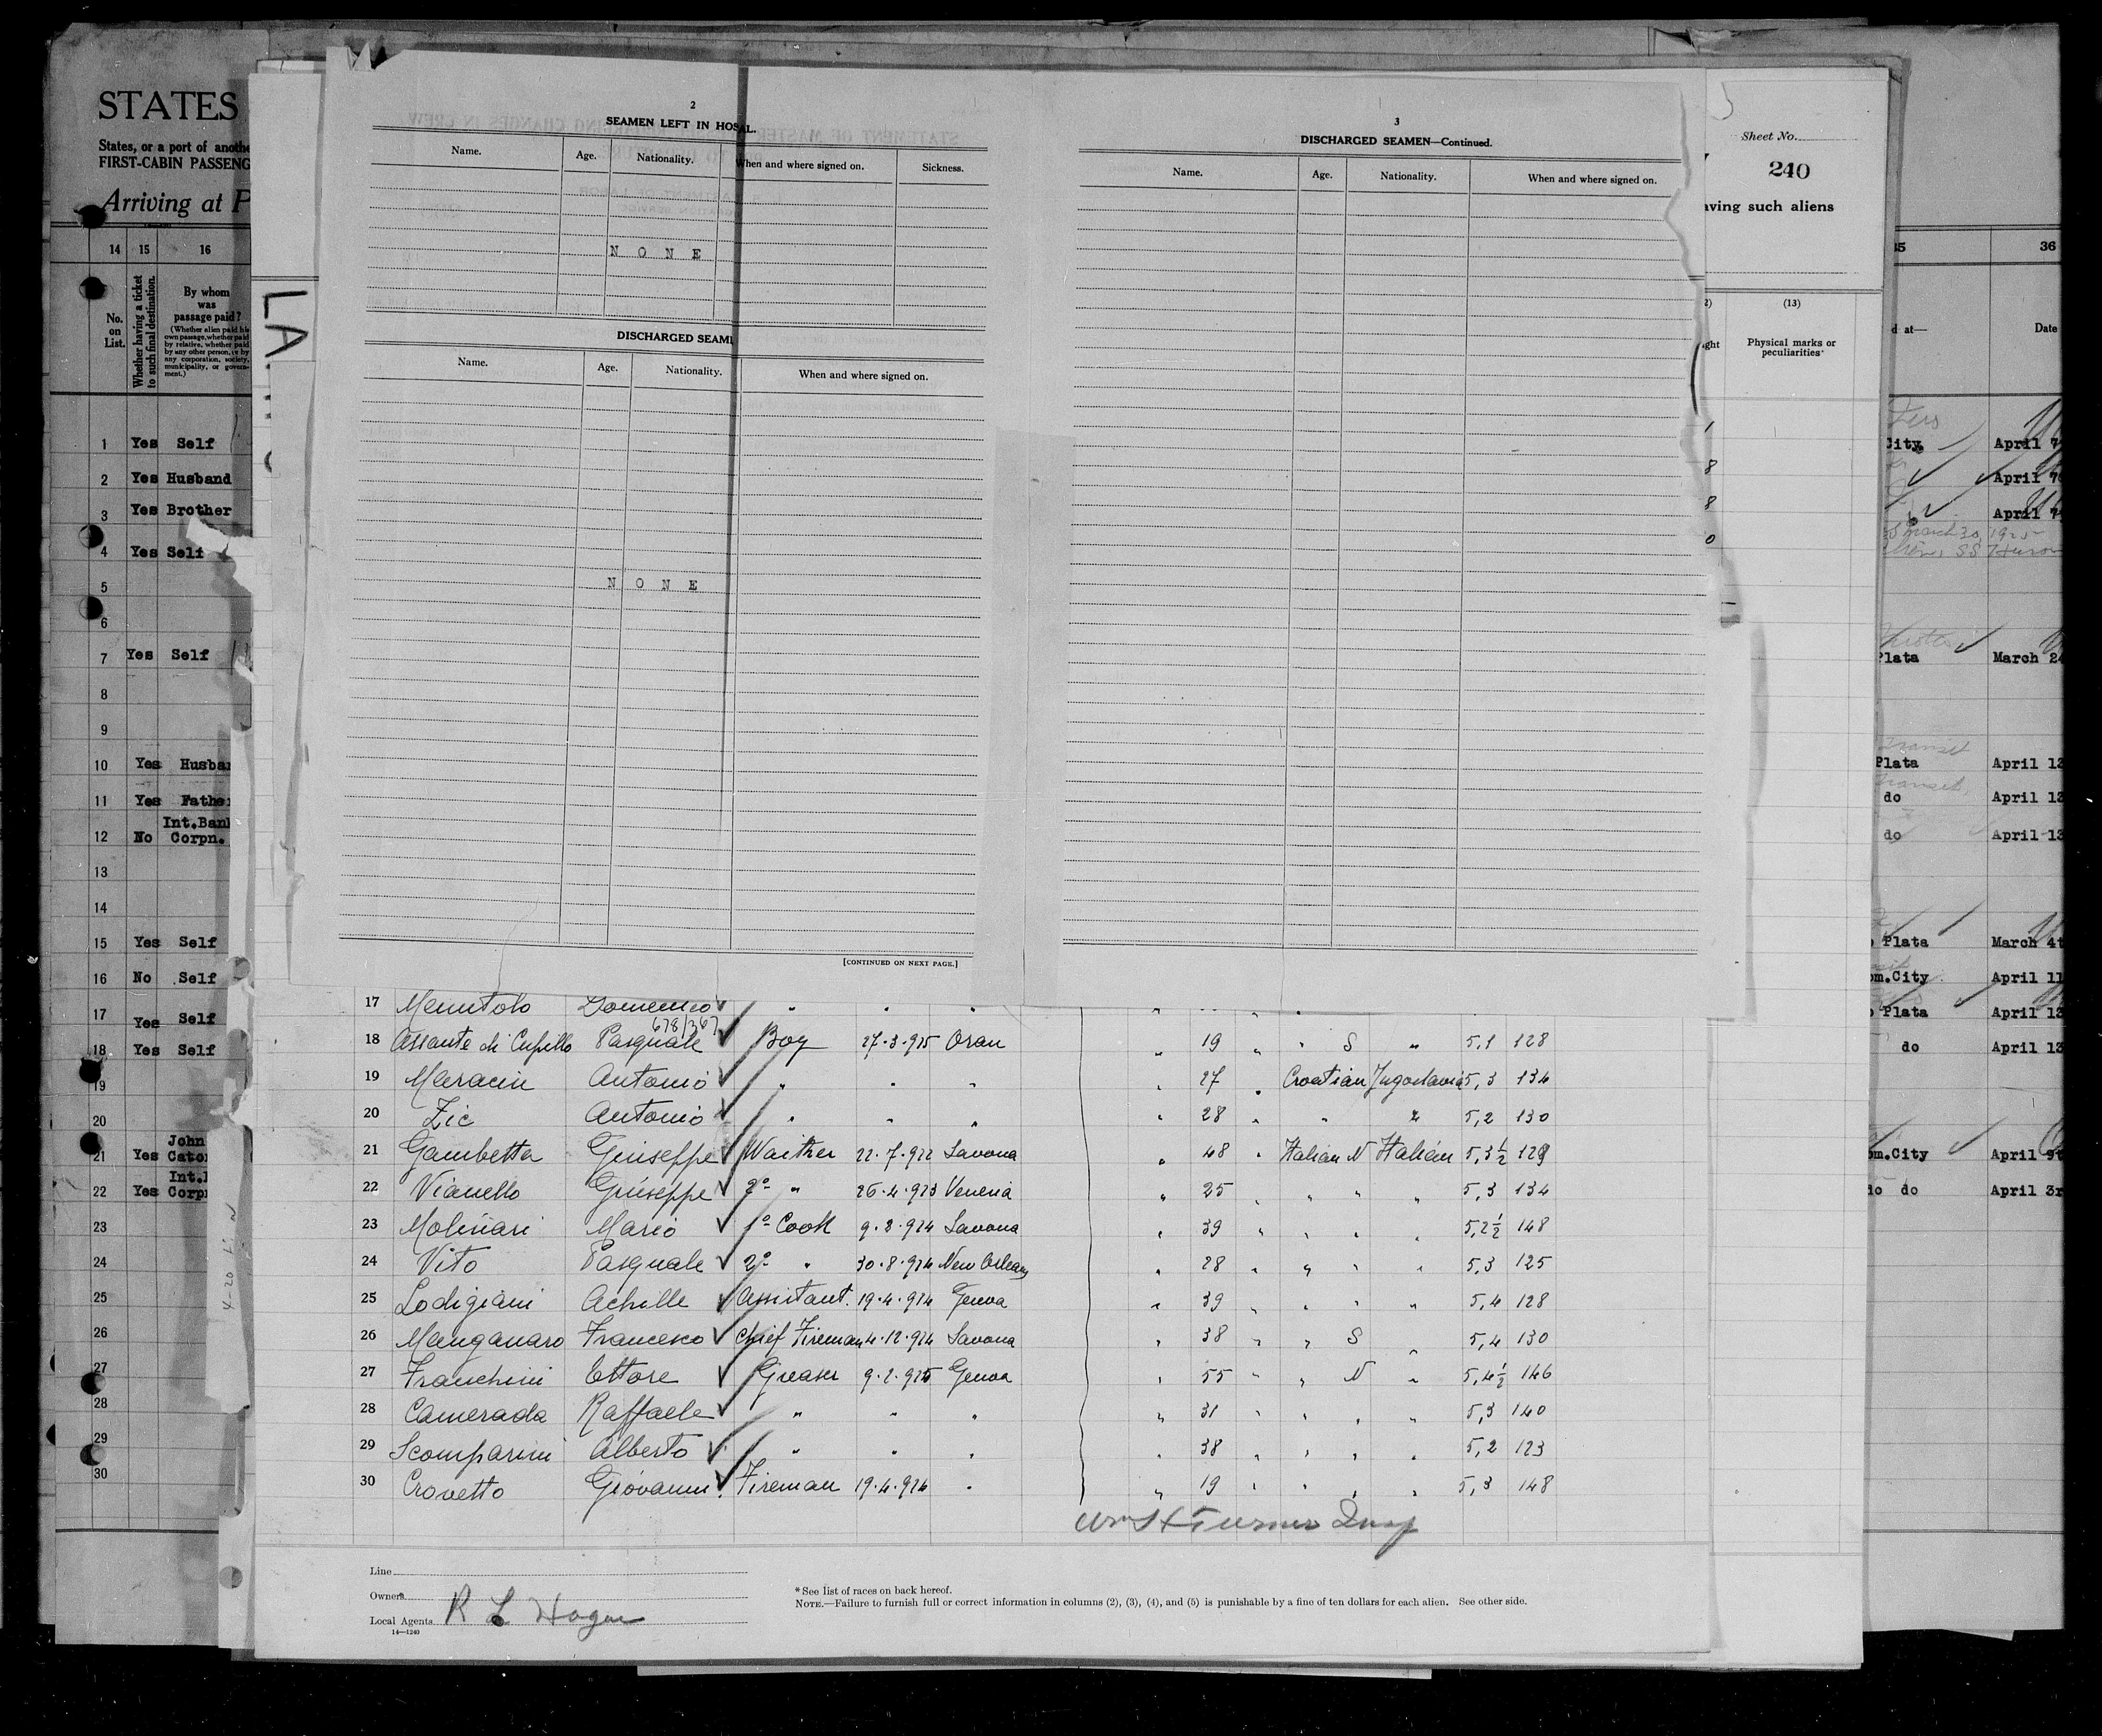 STATES
States, or a port of anothe
FIRST-CABIN PASSENG
Arriving at P
14 15 16
No. on List.
Whether having a ticket to such final destination.
By whom was passage paid?
(Whether alien paid his own passage, whether paid by relative, whether paid by any other person, or by any corporation, society, municipality, or government.)
1 Yes Self
2 Yes Husband
3 Yes Brother
4 Yes Self
5
6
7 Yes Self
8
9
10 Yes Husban
11 Yes Father
12 No Int.Bank Corpn.
13
14
15 Yes Self
16 No Self
17 Yes Self
18 Yes Self
19
20
21 Yes John Cato
22 Yes Int. Corp
23
24
25
26
27
28
29
30
2
SEAMEN LEFT IN HOS AL.
Name. Age. Nationality. When and where signed on. Sickness.
N O N E
DISCHARGED SEAM
Name. Age. Nationality. When and where signed on.
N O N E
[CONTINUED ON NEXT PAGE.]
3
DISCHARGED SEAMEN—Continued.
Name. Age. Nationality. When and where signed on.
Sheet No.
240
aving such aliens
(13)
Physical marks or peculiarities*
17 Domenico
678/367
18 Assante di Cupillo Pasquale Boy 27.3.925 Oran " 19 " " S " 5,1 128
19 Maracin Antonio " " " " 27 " Croatian Jugoslavia 5,3 134
20 Zic Antonio " " " " 28 " " " 5,2 130
21 Gambetta Giuseppe Waither 22.7.922 Savona " 48 " Italian N Italian 5,3½ 129
22 Vianello Giuseppe 2º " 26.4.923 Venezia " 25 " " " " 5,3 134
23 Molinari Mario 1º Cook 9.8.924 Savona " 39 " " " " 5,2½ 148
24 Vito Pasquale 2º " 30.8.924 New Orleans " 28 " " " " 5,3 125
25 Lodigiani Achille Assistant. 19.4.924 Genoa " 39 " " " " 5,4 128
26 Manganaro Francesco Chief Fireman 4.12.924 Savona " 38 " " S " 5,4 130
27 Franchini Ettore Greaser 9.2.925 Genoa " 55 " " N " 5,4½ 146
28 Camerada Raffaele " " " " 31 " " " " 5,3 140
29 Scomparini Alberto " " " " 38 " " " " 5,2 123
30 Crovetto Giovanni Fireman 19.4.924 " " 19 " " " " 5,3 148
Wm H Turner Insp
Line
Owners
Local Agents R L Hogan
14—1240
* See list of races on back hereof.
NOTE.—Failure to furnish full or correct information in columns (2), (3), (4), and (5) is punishable by a fine of ten dollars for each alien. See other side.
35 36
d at— Date
City. April 7
April 7
April 7
March 30, 1925
SS Huron
Plata March 24
Transit
Plata April 13
Transit
do April 13
do April 13
Plata March 4t
om.City April 11
Plata April 13
do April 13
om.City April 9t
do do April 3r